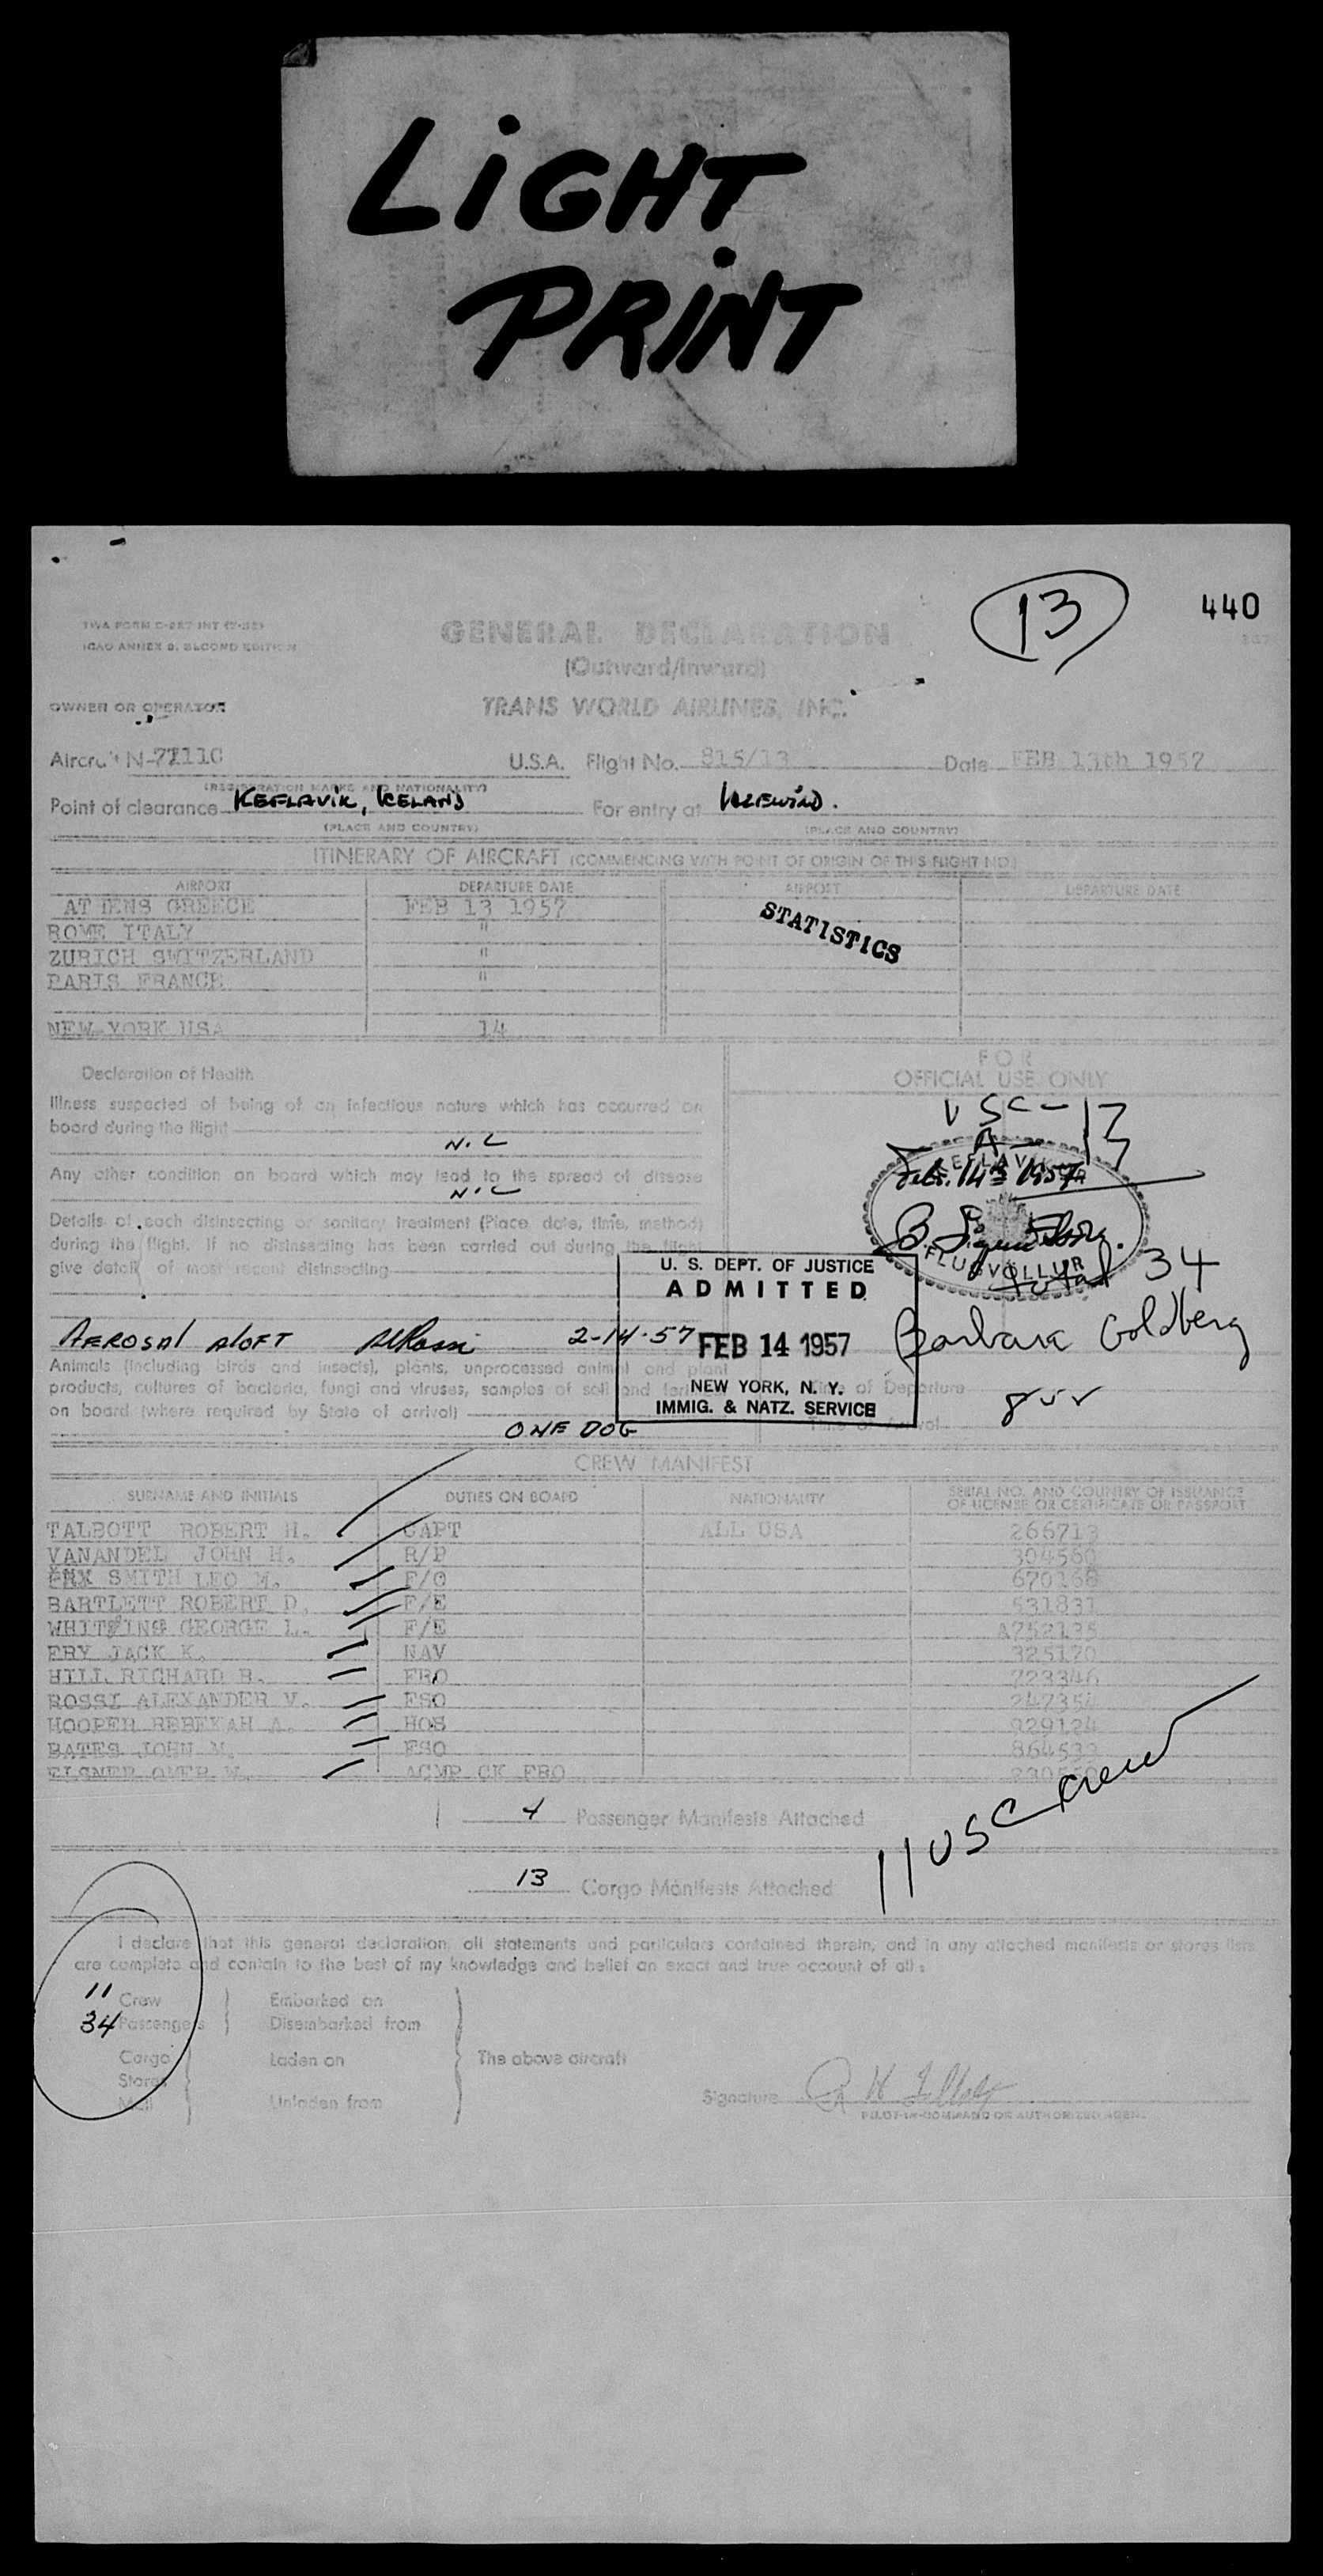 LiGHT
PRiNT
13
440
TWA FORM
ICAO ANNEX 9, SECOND EDITION
GENERAL DECLARATION
(Outward/Inward)
OWNER OR OPERATOR
TRANS WORLD AIRLINES, INC.
Aircraft N-7111C U.S.A. Flight No. 815/13 Date FEB 13th 1957
(REGISTRATION MARKS AND NATIONALITY)
Point of clearance KEFLAVIK, ICELAND For entry at IDLEWILD.
(PLACE AND COUNTRY) (PLACE AND COUNTRY)
ITINERARY OF AIRCRAFT (COMMENCING WITH POINT OF ORIGIN OF THIS FLIGHT NO.)
AIRPORT DEPARTURE DATE AIRPORT DEPARTURE DATE
AT ENS GREECE FEB 13 1957
ROME ITALY "
ZURICH SWITZERLAND "
PARIS FRANCE "
NEW YORK USA 14
STATISTICS
Declaration of Health
Illness suspected of being of an infectious nature which has occurred on
board during the flight
N.L
Any other condition on board which may lead to the spread of disease
N.L
Details of each disinsecting or sanitary treatment (Place, date, time, method)
during the flight. If no disinsecting has been carried out during the flight
give detail of most recent disinsecting
AEROSAL ALOFT 2-14-57
Animals (including birds and insects), plants, unprocessed animal and plant
products, cultures of bacteria, fungi and viruses, samples of soil and
on board (where required by State of arrival)
ONE DOG
FOR
OFFICIAL USE ONLY
USC-13
A-
KEFLAVIK
Feb. 14th 1957
FLUGVOLLUR
total 34
Barbara Goldberg
U. S. DEPT. OF JUSTICE
ADMITTED
FEB 14 1957
NEW YORK, N. Y.
IMMIG. & NATZ. SERVICE
Time of Departure
Time of Arrival
CREW MANIFEST
SURNAME AND INITIALS DUTIES ON BOARD NATIONALITY SERIAL NO. AND COUNTRY OF ISSUANCE
OF LICENSE OR CERTIFICATE OR PASSPORT
TALBOTT ROBERT H. CAPT ALL USA 266713
VANANDEL JOHN H. R/P 304560
SMITH LEO M. F/O
BARTLETT ROBERT D. F/E 531831
WHITING GEORGE L. F/E A752135
FRY JACK K. NAV 325170
HILL RICHARD B. FRO 723346
ROSSI ALEXANDER V. FSO 247354
HOOPER REBEKAH A. HOS 929124
BATES JOHN M. FSO 864539
ELSNER W. ACMP CK FRO
4 Passenger Manifests Attached
11 USC Crew
13 Cargo Manifests Attached
I declare that this general declaration, all statements and particulars contained therein, and in any attached manifests or stores lists
are complete and contain to the best of my knowledge and belief an exact and true account of all:
11 Crew Embarked on
34 Passengers Disembarked from
Cargo Laden on The above aircraft
Stores
Mail Unladen from
Signature
PILOT-IN-COMMAND OR AUTHORIZED AGENT